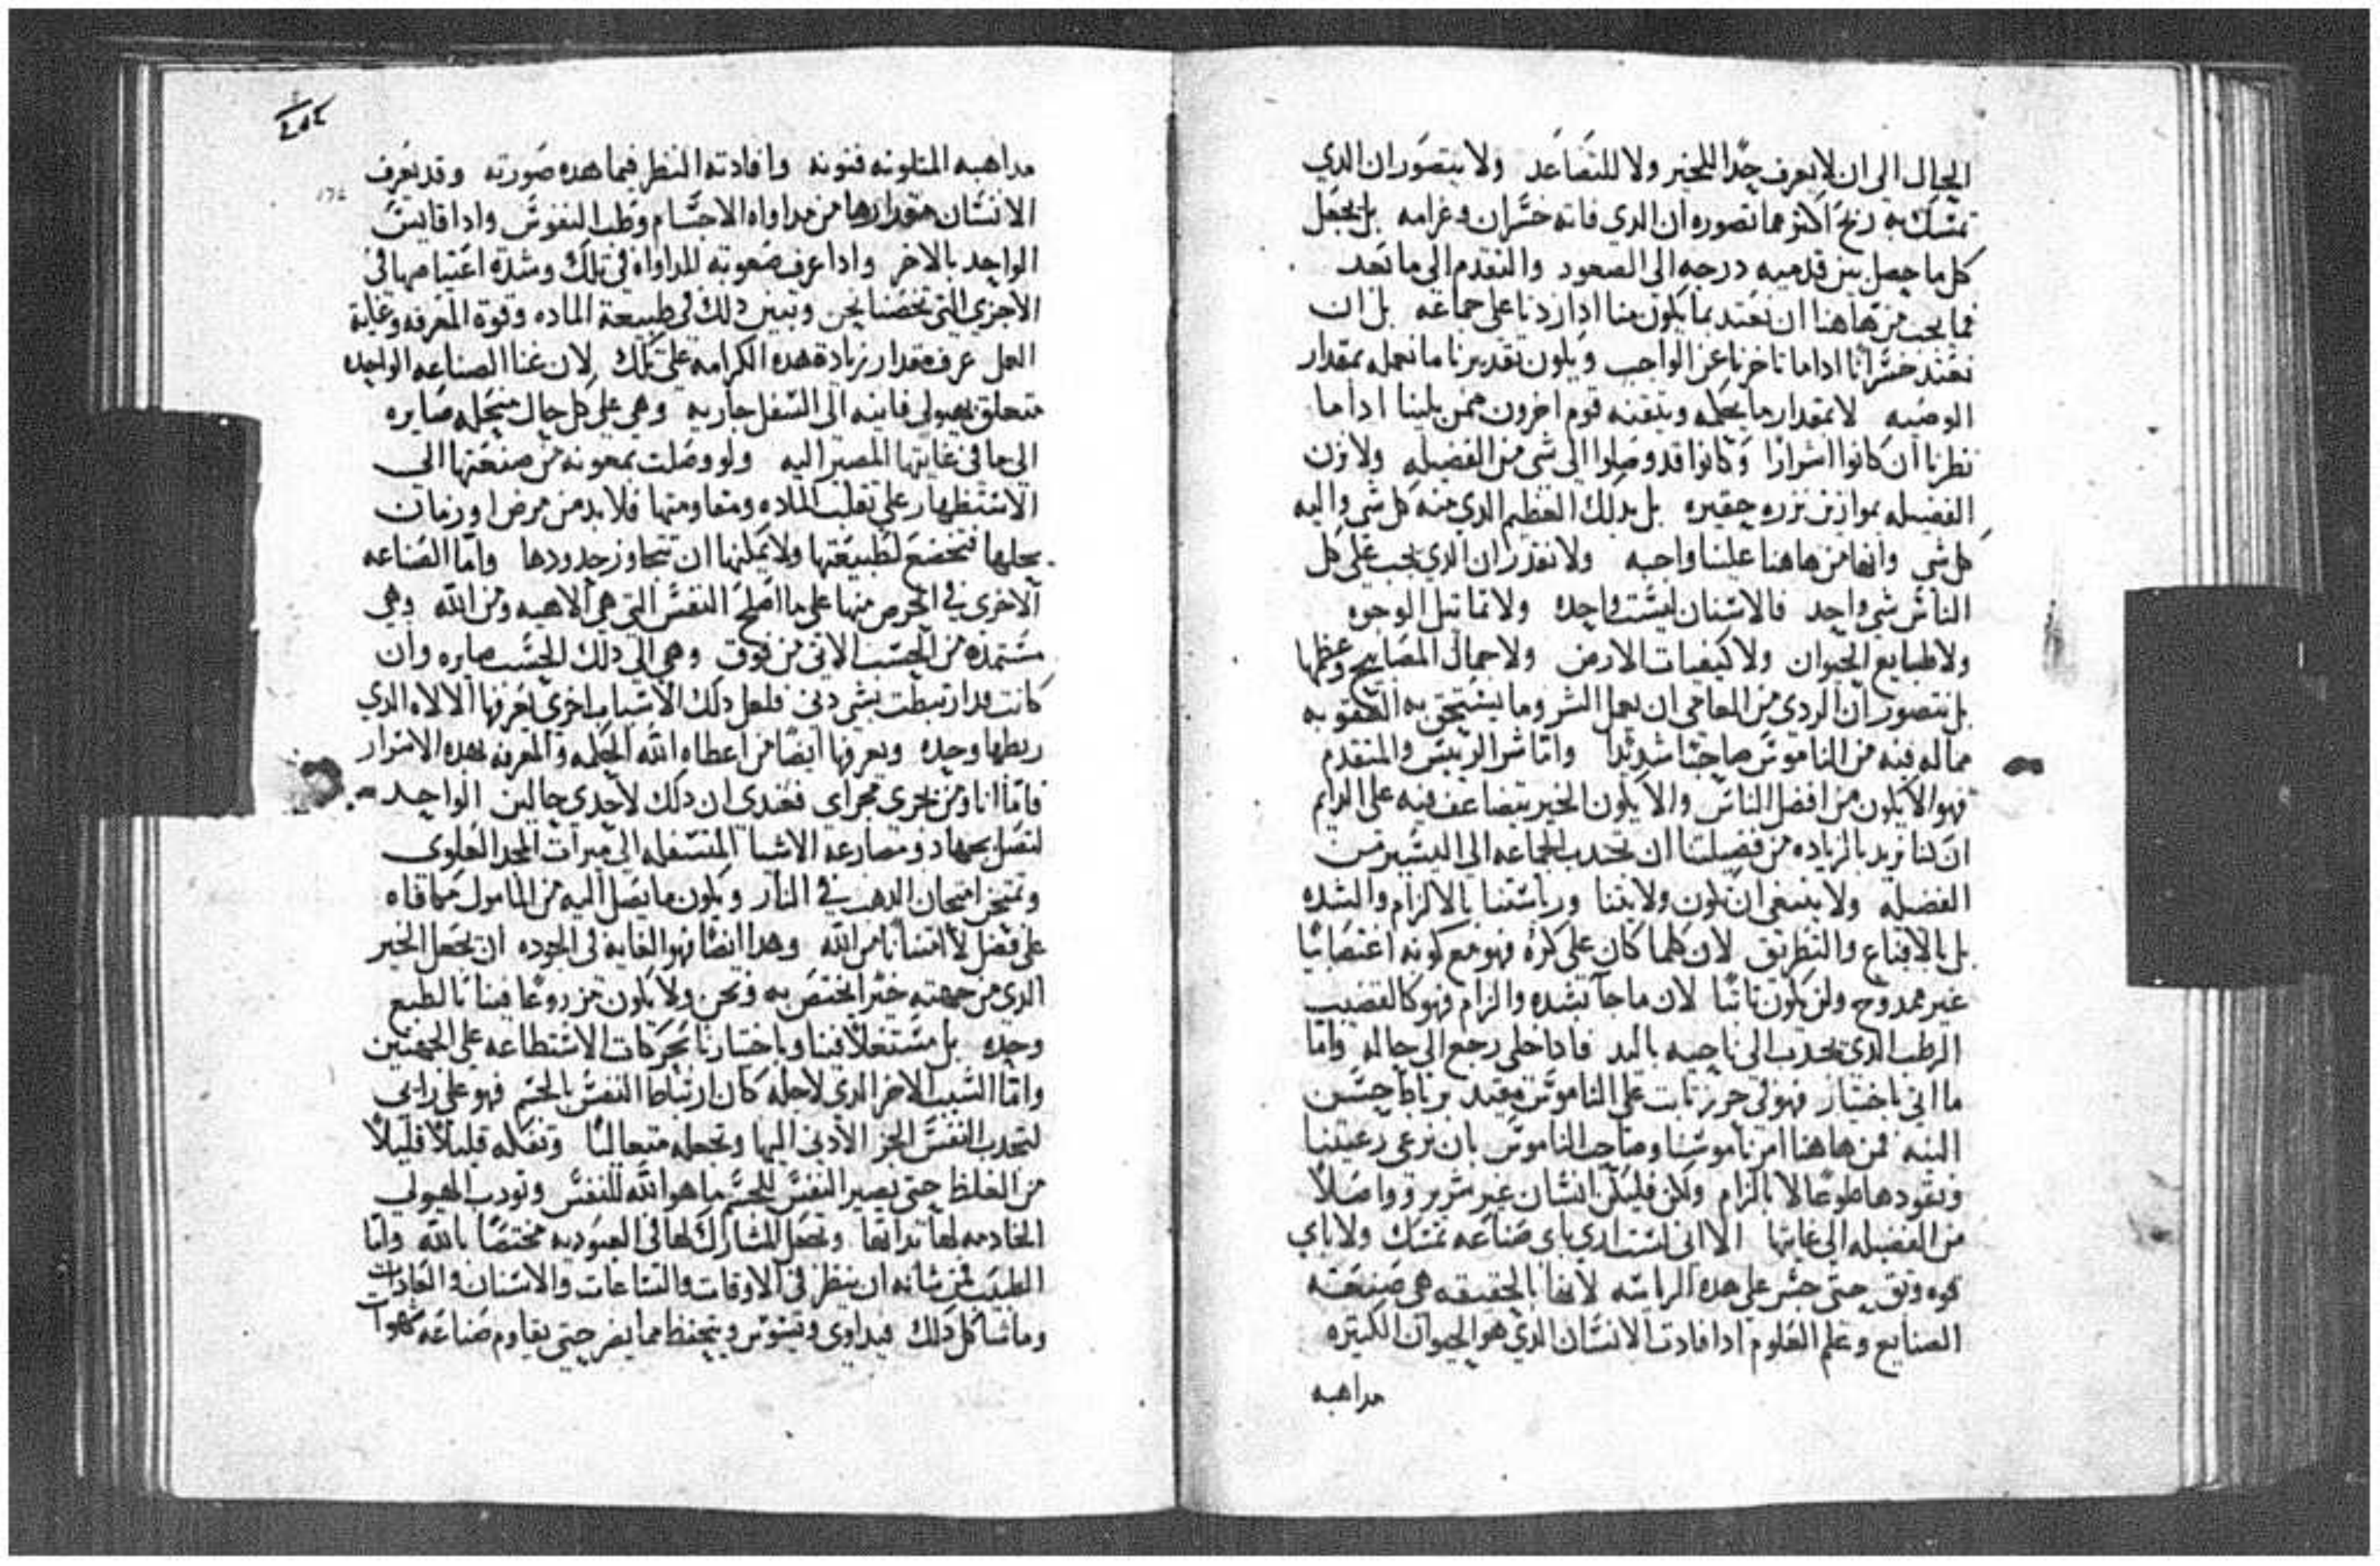 الحال الى ان لا يعرف حدًا للخير ولا للتصاعد ولا يتصور ان الدي
تمسك به ربح اكثر مما تصوره ان الدي فاته خسران وغرامه بل يجعل
كل ما حصل بين قدميه درجه الى الصعود والتقدم الى ما بعد
فما يجب من هاهنا ان نعتد بما يكون منا ادا زدنا على جماعه بل ان
نعتد خسرانا ادا ما تاخرنا عن الواجب ويكون تقديرنا ما نعمله بمقدار
الوصيه لا بمقدار ما يعمله ويتقنه قوم اخرون ممن يلينا ادا ما
نظرنا ان كانوا اشرارًا وكانوا قد وصلوا الى شي من الفضيله ولا نزن
الفضيله بموازين نزره حقيره بل بدلك العظيم الدي منه كل شي واليه
كل شي وانها من هاهنا علينا واجبه ولا نقدر ان الدي يجب على كل
الناس شي واحد فالاسنان ليست واحده ولا تماثيل الوجوه
ولا طبايع الحيوان ولا كيفيات الارض ولا جمال المصابيح وعظمها
بل نتصور ان الردي من العامي ان يعمل الشر وما يستحق به العقوبه
مما له فيه من الناموس صاحبًا شديدًا واما شر الرييس والمتقدم
فهو الا يكون من افضل الناس والا يكون الخير يتضاعف فيه على الدايم
ان كنا نريد بالزياده من فضيلتنا ان نجدب الجماعه الى اليسير من
الفضيله ولا ينبغي ان تكون ولايتنا ورياستنا بالالزام والشده
بل بالاقناع والتطريق لان كلما كان على كره فهو مع كونه اغتصابيًا
غير ممدوح ولن يكون ثابتًا لان ما جا بشده والزام فهو كالقضيب
الرطب الدي يجدب الى ناحيه باليد فادا خلي رجع الى حاله واما
ما اتي باختيار فهو في حرز ثابت على الناموس مقيد برباط حسن
النيه فمن هاهنا امر ناموسنا وصاحب الناموس بان نرعى رعيتنا
ونقودها طوعًا لا بالزام ولكن فليكن انسان غير شرير وواصلًا
من الفضيله الى غايتها الا اني لست ادري باي صناعه تمسك ولا باي
قوه وثق حتى جسر على هده الراسه لانها بالحقيقه هي صنعة
الصنايع وعلم العلوم ادا فادت الانسان الدي هو الحيوان الكثيره
مداهبه
مداهبه المتلونه فنونه وافادته النظر فيما هده صورته وقد يعرف
الانسان مقدارها من مداواه الاجسام وطب النفوس وادا قايست
الواحد بالاخر وادا عرف صعوبه المداواه في تلك وشدة اعتياصها في
الاخرى التي تخصنا نحن وتبين دلك في طبيعة الماده وقوة المعرفه وغاية
العمل عرف مقدار زيادة هده الكرامه على تلك لان عنا الصناعه الواحده
متعلق بهيولى فانيه الى السفل جاريه وهي على كل حال منحله صايره
الى ما في غايتها المصير اليه ولو وصلت بمعونه من صنعتها الى
الاستظهار على تقلب الماده ومقاومتها فلا بد من مرض او زمان
يحلها فتخضع لطبيعتها ولا يمكنها ان تتجاوز حدودها واما الصناعه
الاخرى في الحرص منها على ما اصلح النفس التي هي الاهيه ومن الله وهي
مستمده من الحسب الاتي من فوق وهي الى دلك الحسب صايره وان
كانت قد ارتبطت بشي دني فلعل دلك لاسباب اخرى يعرفها الالاه الدي
ربطها وحده ويعرفها ايضًا من اعطاه الله الحكمه والمعرفه بهده الاسرار
فاما انا ومن يجري مجراي فعندي ان دلك لاحدى حالين الواحد
لتصل بجهاد ومصارعه الاشيا المتسفله الى ميرات المجد العلوى
وتمتحن امتحان الدهب في النار ويكون ما يصل اليه من المامول مكافاه
على فضل لا امتنانًا من الله وهدا ايضًا فهو الغايه في الجوده ان يجعل الخير
الدي من جهته خيرًا يختص به ونحن ولا يكون مزروعًا فينا بالطبع
وحده بل مستعملًا فينا وباختيارنا بحركات الاستطاعه على الجهتين
واما السبب الاخر الدي لاجله كان ارتباط النفس بالجسم فهو على رايي
لتجدب النفس الجز الادنى اليها وتجعله متعاليًا وتفكه قليلًا قليلًا
من الغلظ حتى يصير النفس للجسم ما هو الله للنفس وتودب الهيولى
الخادمه لها بدانها وتجعل المشارك لها في العبوديه مختصًا بالله واما
الطبيب فمن شانه ان ينظر في الاوقات والساعات والاسنان والعادات
وما شاكل دلك فيداوى ويسوس ويتحفظ مما يضر حتى يقاوم صناعه شهوات